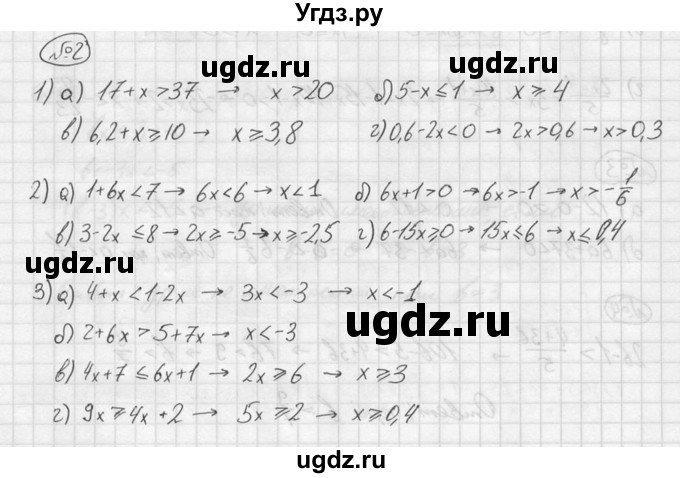 Угдз.ру
№2
ugdz.ru ugdz.ru
1) а) 17+x>37 → x>20 б) 5-x≤1 → x≥4
в) 6,2+x≥10 → x≥3,8 г) 0,6-2x<0 → 2x>0,6 → x>0,3
2) а) 1+6x<7 → 6x<6 → x<1 б) 6x+1>0 → 6x>-1 → x>-1/6
в) 3-2x≤8 → 2x≥-5 → x≥-2,5 г) 6-15x≥0 → 15x≤6 → x≤0,4
ugdz.ru
3) а) 4+x<1-2x → 3x<-3 → x<-1
ugdz.ru
б) 2+6x>5+7x → x<-3
в) 4x+7≤6x+1 → 2x≥6 → x≥3
г) 9x≥4x+2 → 5x≥2 → x≥0,4
ugdz.ru ugdz.ru
ugdz.ru